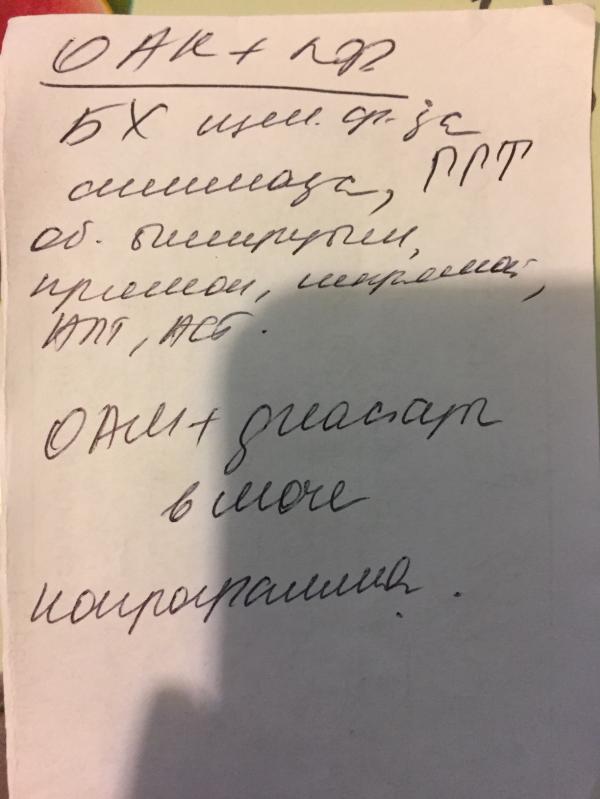 ОАК + лф
БХ щел. ф-за
амилаза, ГГТ
об. билирубин,
прямой, непрямой,
АЛТ, АСТ.
ОАМ + диастаза
в моче
копрограмма.